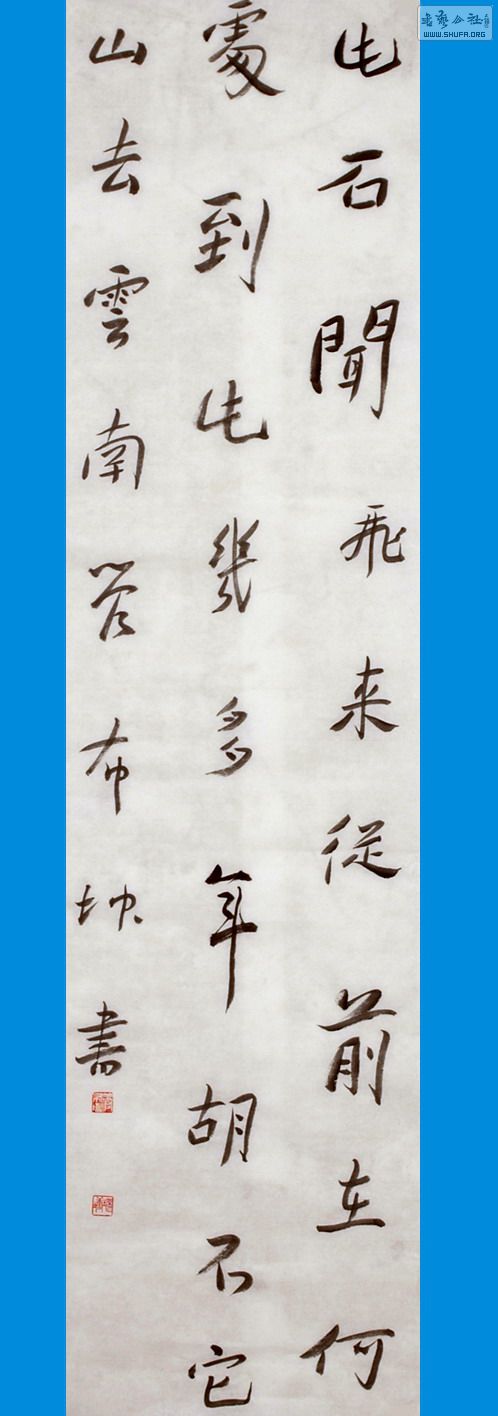 此石聞飛来從前在何
處到此幾多年胡不它
山去雲南管布坤書
书艺公社
WWW.SHUFA.ORG